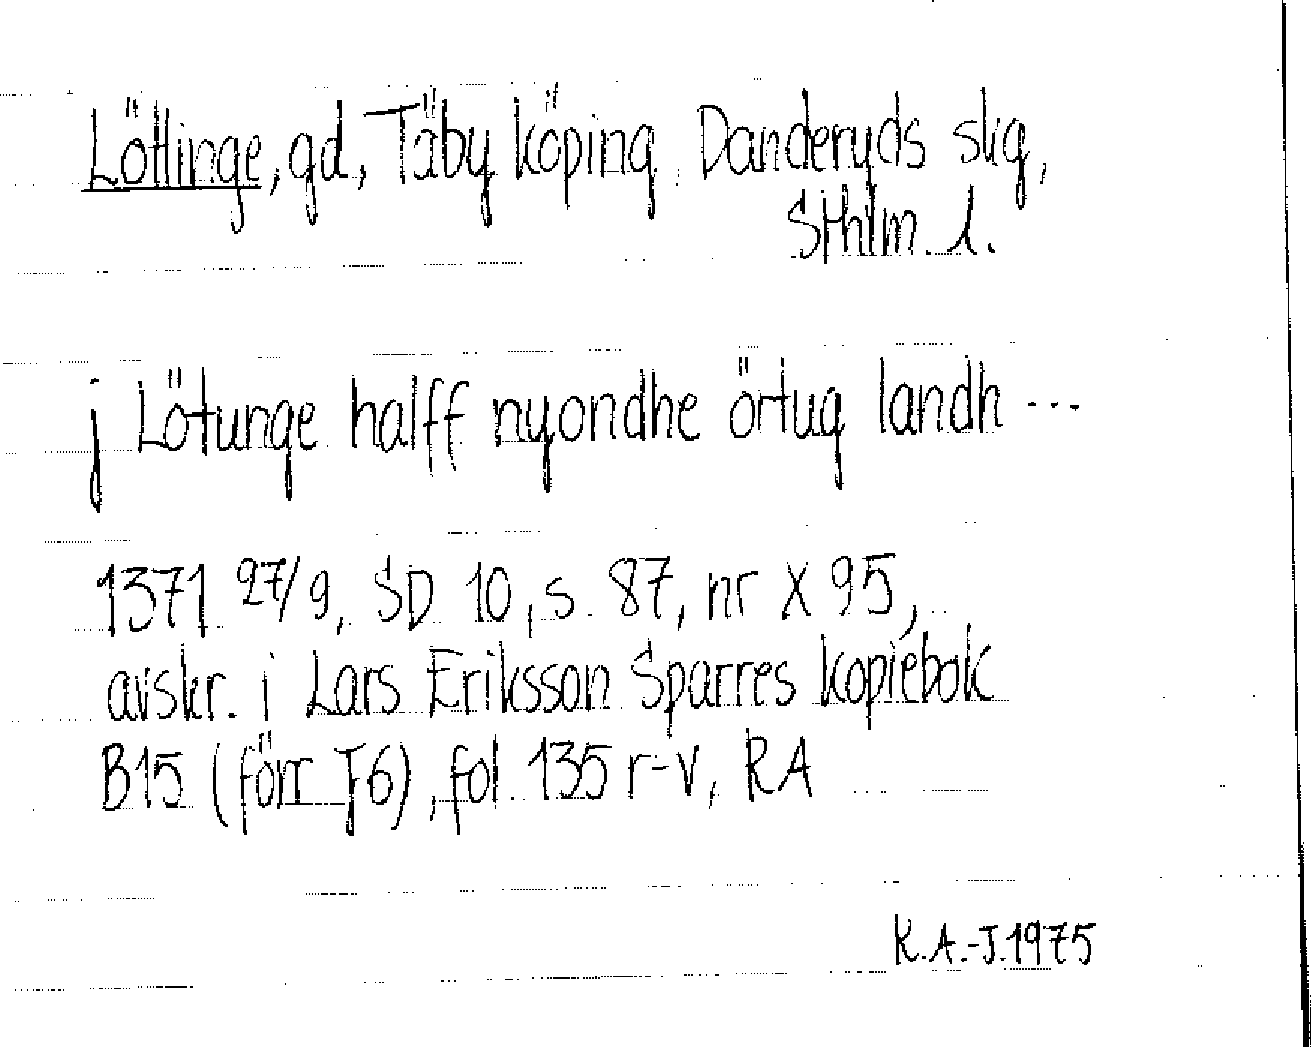 Löttinge, gd, Täby köping, Danderyds skg,
Sthlm l.
j Lötunge halff nyondhe örtug landh ...
1371 27/9, SD 10, s. 87, nr X 95,
avskr. i Lars Eriksson Sparres kopiebok
B15 (förr J6), fol. 135 r-v, RA
K.A.-J. 1975